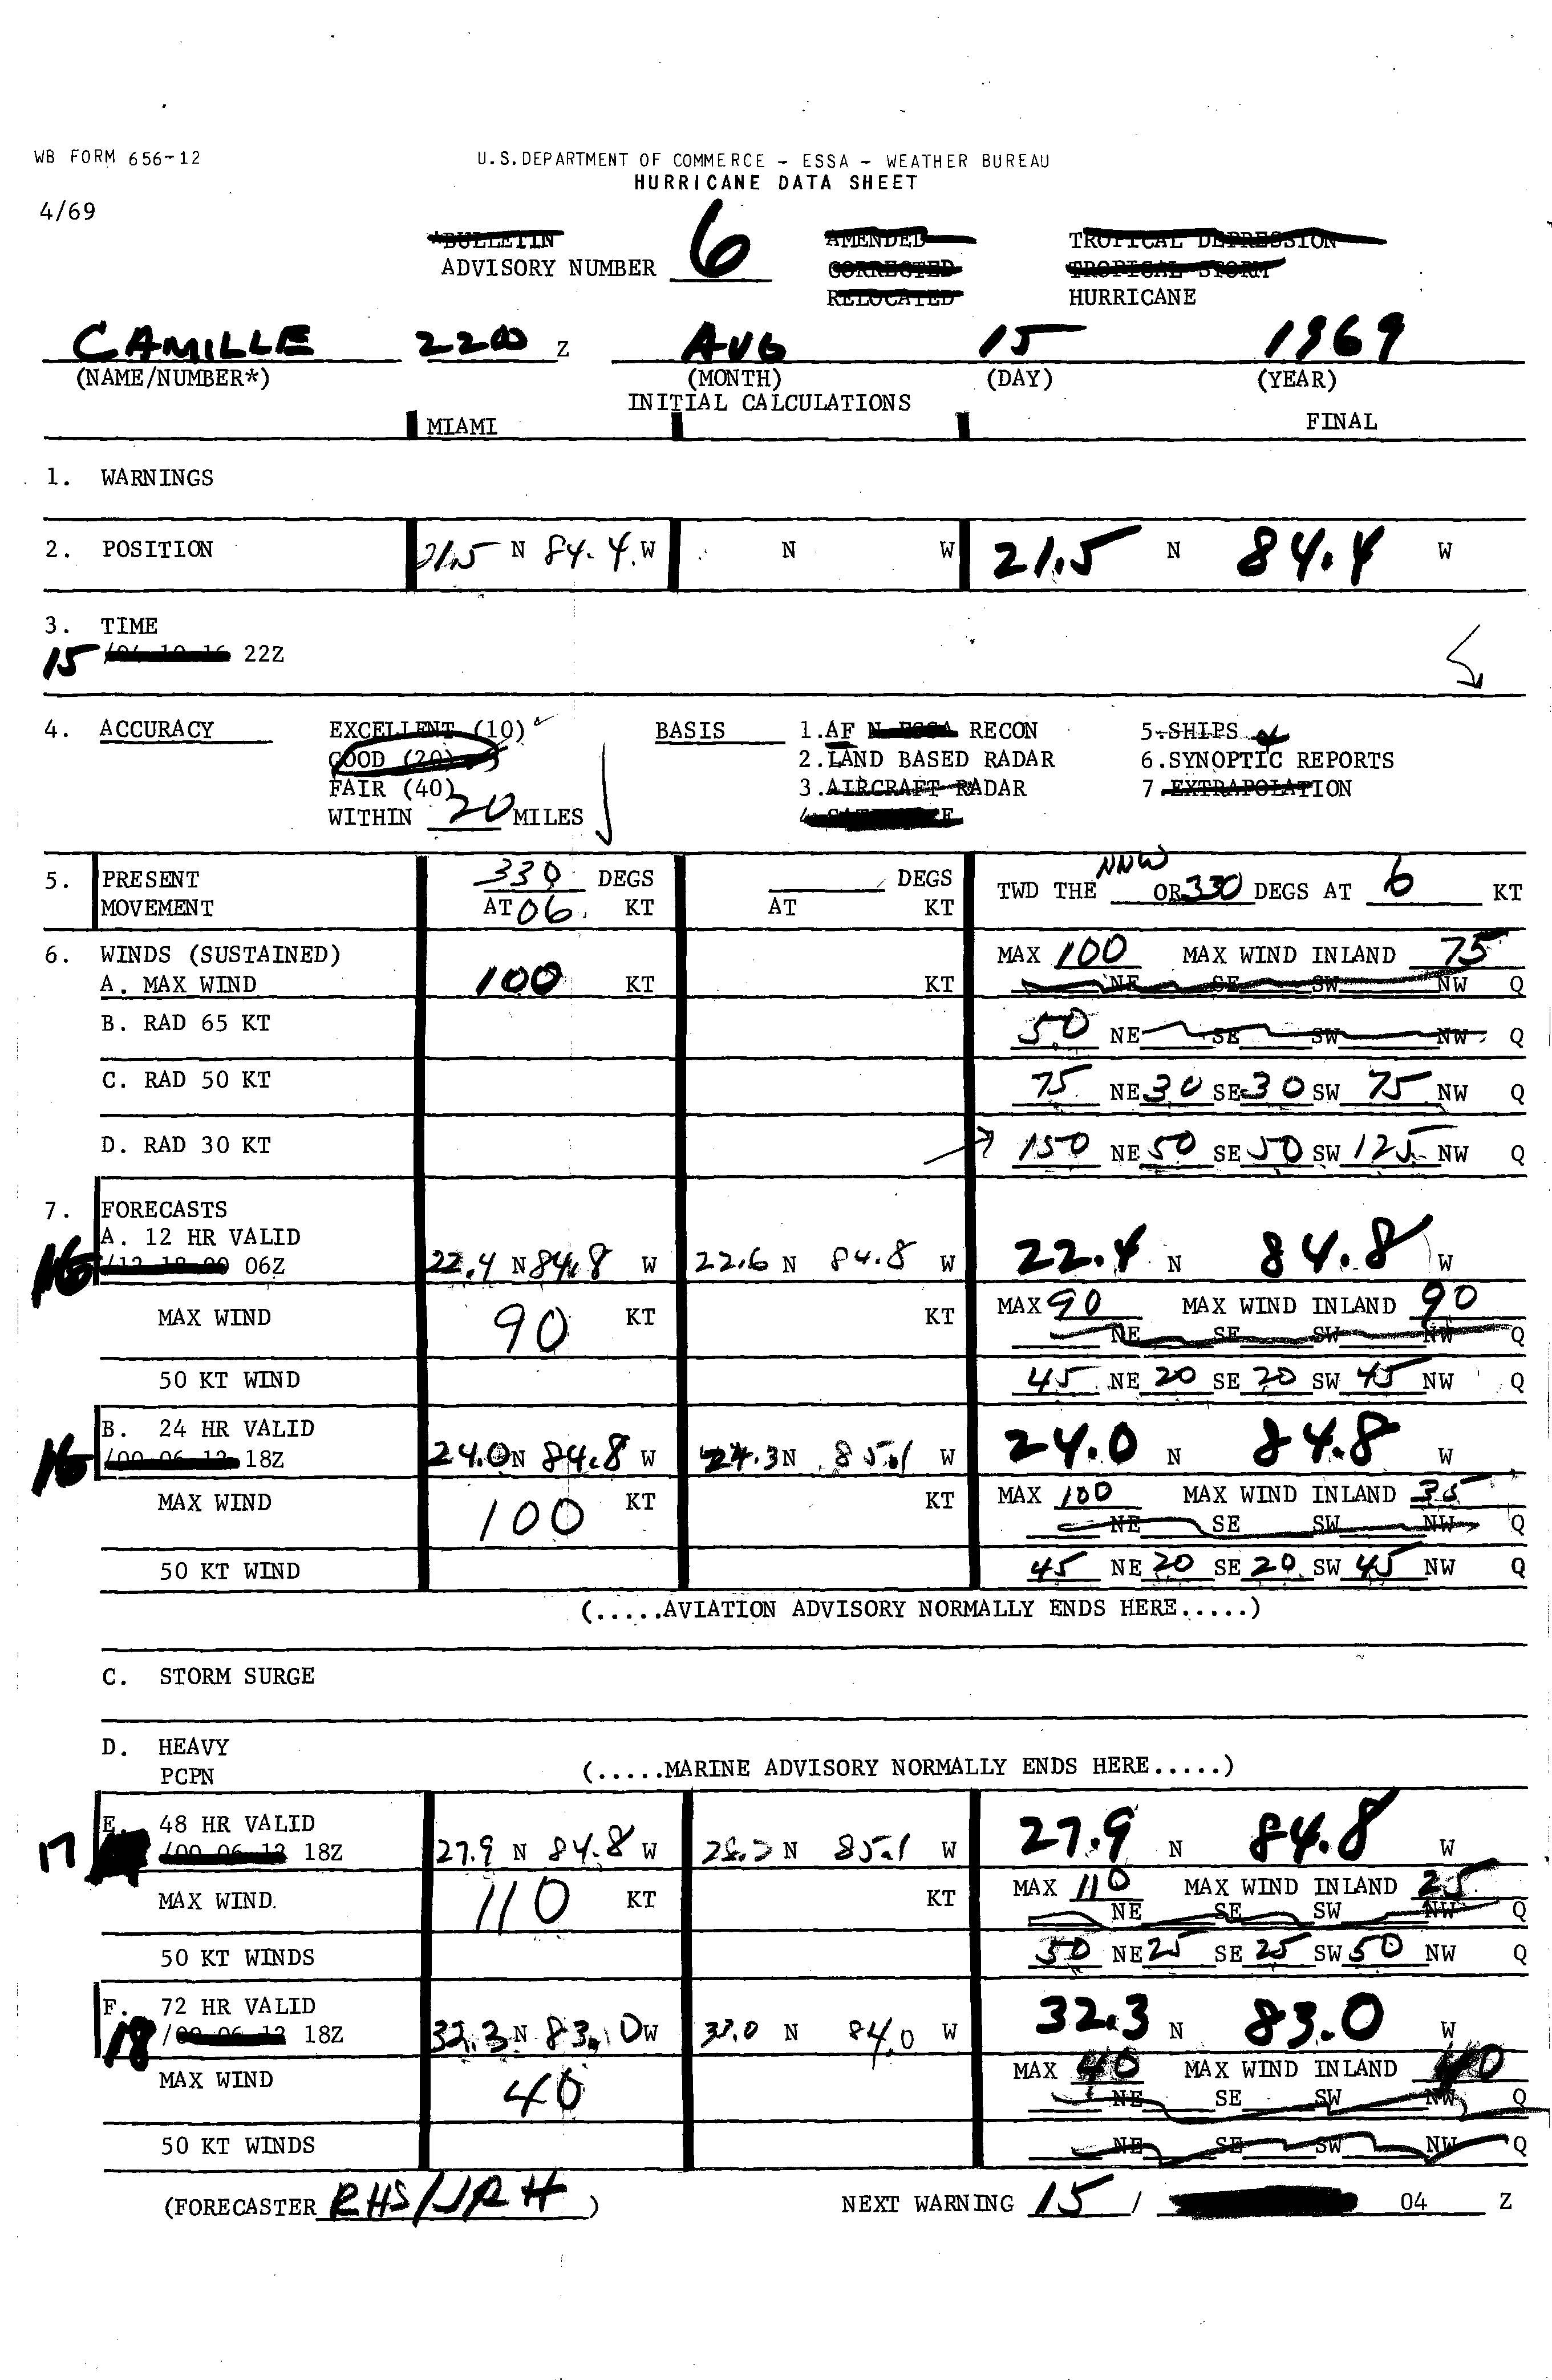 WB FORM 656-12
U.S. DEPARTMENT OF COMMERCE - ESSA - WEATHER BUREAU
HURRICANE DATA SHEET
4/69
*BULLETIN AMENDED TROPICAL DEPRESSION
ADVISORY NUMBER 6 CORRECTED TROPICAL STORM
RELOCATED HURRICANE
CAMILLE 2200 Z AUG 15 1969
(NAME/NUMBER*) (MONTH) (DAY) (YEAR)
INITIAL CALCULATIONS
MIAMI FINAL
1. WARNINGS
2. POSITION 21.5 N 84.4 W N W 21.5 N 84.4 W
3. TIME
15 22Z
4. ACCURACY EXCELLENT (10) BASIS 1.AF N ESSA RECON 5.SHIPS
GOOD (20) 2.LAND BASED RADAR 6.SYNOPTIC REPORTS
FAIR (40) 3.AIRCRAFT RADAR 7 EXTRAPOLATION
WITHIN 20 MILES 4.
5. PRESENT 330 DEGS DEGS TWD THE NNW OR 330 DEGS AT 6 KT
MOVEMENT AT 06 KT AT KT
6. WINDS (SUSTAINED) MAX 100 MAX WIND INLAND 75
A. MAX WIND 100 KT KT NE SE SW NW Q
B. RAD 65 KT 50 NE SE SW NW Q
C. RAD 50 KT 75 NE 30 SE 30 SW 75 NW Q
D. RAD 30 KT 150 NE 50 SE 50 SW 125 NW Q
7. FORECASTS
A. 12 HR VALID
16 06Z 22.4 N 84.8 W 22.6 N 84.8 W 22.4 N 84.8 W
MAX WIND 90 KT KT MAX 90 MAX WIND INLAND 90
NE SE SW NW Q
50 KT WIND 45 NE 20 SE 20 SW 45 NW Q
B. 24 HR VALID
16 /00 06 12 18Z 24.0 N 84.8 W 24.3 N 85.1 W 24.0 N 84.8 W
MAX WIND 100 KT KT MAX 100 MAX WIND INLAND 35
NE SE SW NW Q
50 KT WIND 45 NE 20 SE 20 SW 45 NW Q
(.....AVIATION ADVISORY NORMALLY ENDS HERE.....)
C. STORM SURGE
D. HEAVY
PCPN (.....MARINE ADVISORY NORMALLY ENDS HERE.....)
E. 48 HR VALID
17 /00 06 12 18Z 27.9 N 84.8 W N 85.1 W 27.9 N 84.8 W
MAX WIND. 110 KT KT MAX 110 MAX WIND INLAND 25
NE SE SW NW Q
50 KT WINDS 50 NE 25 SE 25 SW 50 NW Q
F. 72 HR VALID
18 /00 06 12 18Z 32.3 N 83.0 W N 84.0 W 32.3 N 83.0 W
MAX WIND 40 MAX 40 MAX WIND INLAND 40
NE SE SW NW Q
50 KT WINDS NE SE SW NW Q
(FORECASTER RHS/JRH) NEXT WARNING 15 / 04 Z